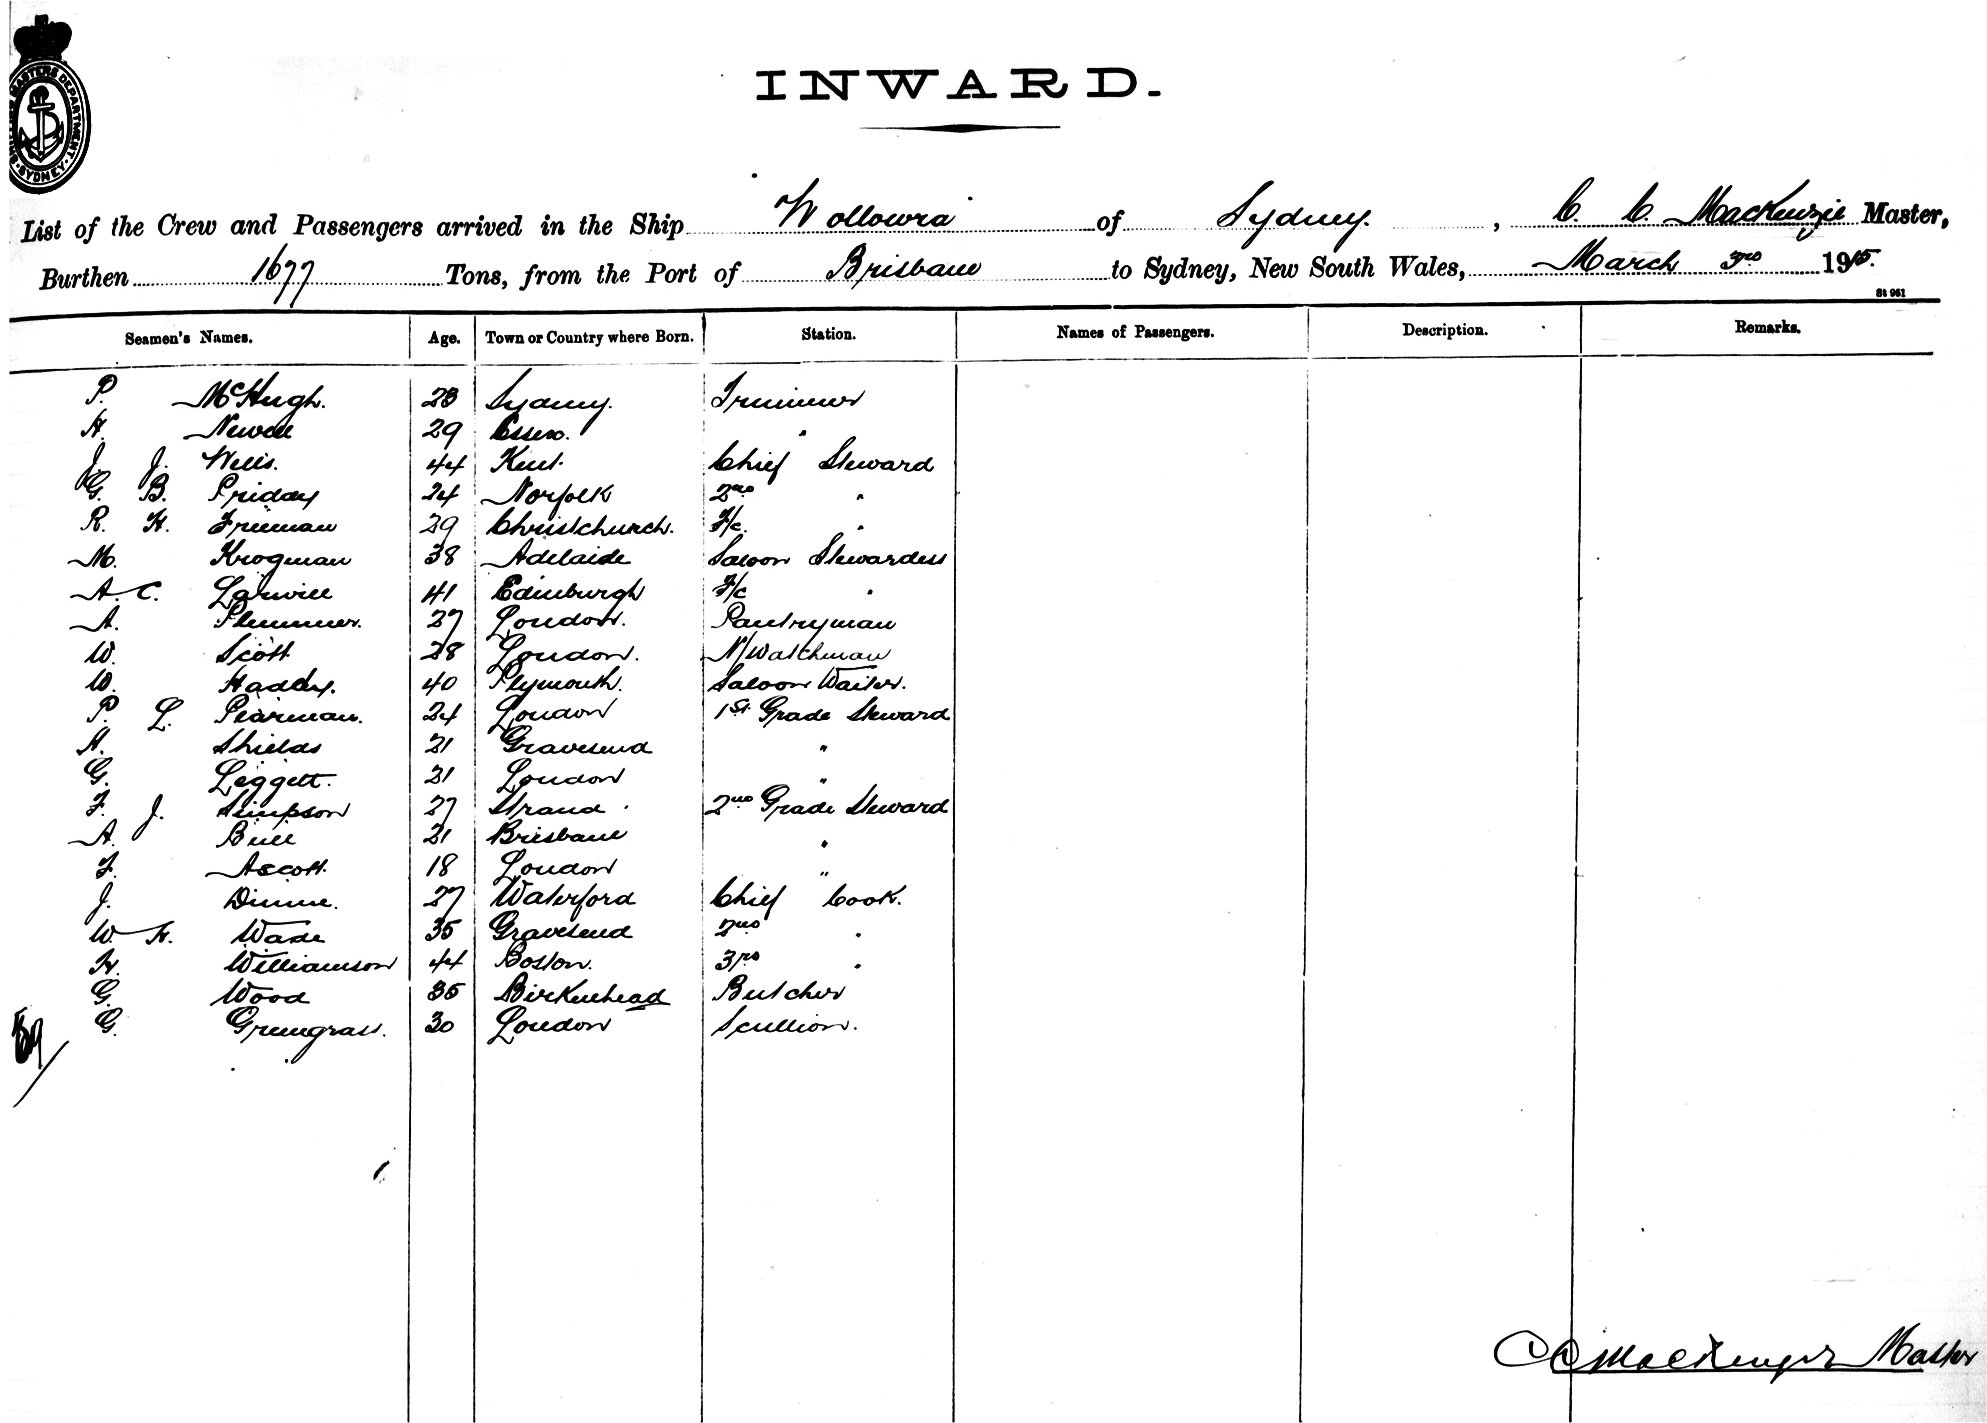 SHIPPING MASTERS DEPARTMENT · SYDNEY ·
INWARD.
List of the Crew and Passengers arrived in the Ship Wollowra of Sydney. , C. C. MacKenzie Master,
Burthen 1677 Tons, from the Port of Brisbane to Sydney, New South Wales, March 3rd 1915.
St 961
Seamen's Names. Age. Town or Country where Born. Station. Names of Passengers. Description. Remarks.
P. McHugh. 23 Sydney. Trimmer
H. Newell 29 Essex. "
J. J. Wells. 44 Kent. Chief Steward
G. B. Priday 24 Norfolk 2nd "
R. H. Freeman 29 Christchurch. F/c. "
M. Krogman 38 Adelaide Saloon Stewardess
A. C. Larwill 41 Edinburgh F/c "
A. Plummer. 27 London. Pantryman
W. Scott 28 London. N/Watchman
W. Hadley. 40 Plymouth. Saloon Waiter.
P. L. Pearman. 24 London 1st Grade Steward
A. Shields 21 Gravesend "
G. Leggett. 21 London "
F. J. Simpson 27 Strand 2nd Grade Steward
A. Bull 21 Brisbane "
F. Ascott. 18 London "
J. Dunne. 27 Waterford Chief Cook.
W. H. Wade 35 Gravesend 2nd "
H. Williamson 44 Boston. 3rd "
G. Wood 35 Birkenhead Butcher
G. Greengrass. 30 London Scullion.
59
C C MacKenzie Master